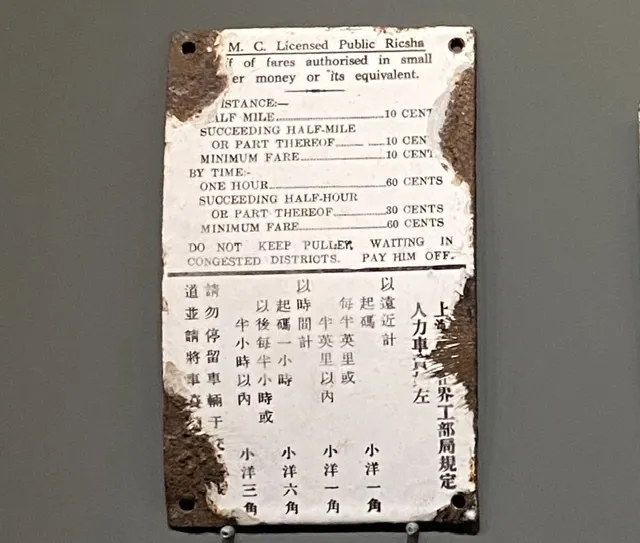 M. C. Licensed Public Ricsha
ff of fares authorised in small
er money or its equivalent.
ISTANCE:—
ALF MILE..........10 CENT
SUCCEEDING HALF-MILE
OR PART THEREOF..........10 CEN
MINIMUM FARE..........10 CENT
BY TIME:-
ONE HOUR..........60 CENTS
SUCCEEDING HALF-HOUR
OR PART THEREOF..........30 CENTS
MINIMUM FARE..........60 CENTS
DO NOT KEEP PULLER WAITING IN
CONGESTED DISTRICTS. PAY HIM OFF.
上海 界工部局規定
人力車 左
以遠近計
起碼 小洋一角
每半英里或
半英里以內 小洋一角
以時間計
起碼一小時 小洋六角
以後每半小時或
半小時以內 小洋三角
請勿停留車輛于
道並請將車